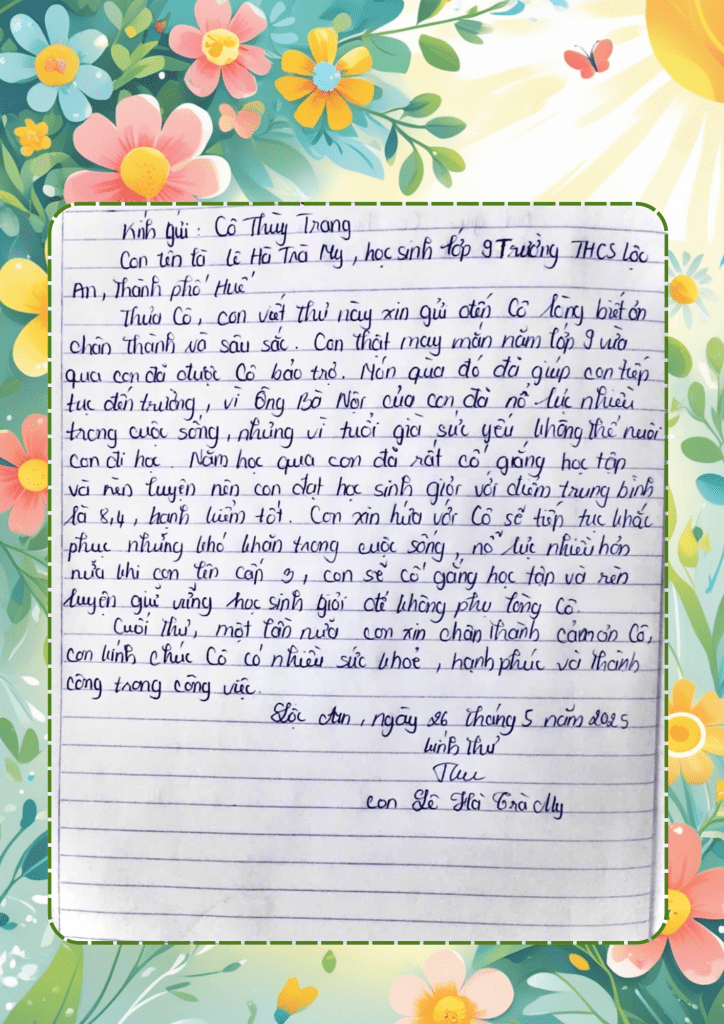 Kính gửi: Cô Thùy Trang
Con tên là Lê Hà Trà My, học sinh lớp 9 Trường THCS Lộc
An, Thành phố Huế
Thưa Cô, con viết thư này xin gửi đến Cô lòng biết ơn
chân thành và sâu sắc. Con thật may mắn năm lớp 9 vừa
qua con đã được Cô bảo trợ. Món quà đó đã giúp con tiếp
tục đến trường, vì Ông Bà Nội của con đã nỗ lực nhiều
trong cuộc sống, nhưng vì tuổi già sức yếu không thể nuôi
con đi học. Năm học qua con đã rất cố gắng học tập
và rèn luyện nên con đạt học sinh giỏi với điểm trung bình
là 8,4, hạnh kiểm tốt. Con xin hứa với Cô sẽ tiếp tục khắc
phục những khó khăn trong cuộc sống, nỗ lực nhiều hơn
nữa khi con lên cấp 3, con sẽ cố gắng học tập và rèn
luyện giữ vững học sinh giỏi để không phụ lòng Cô.
Cuối thư, một lần nữa con xin chân thành cảm ơn Cô,
con kính chúc Cô có nhiều sức khoẻ, hạnh phúc và thành
công trong công việc.
Lộc An, ngày 26 tháng 5 năm 2025
kính thư
con Lê Hà Trà My